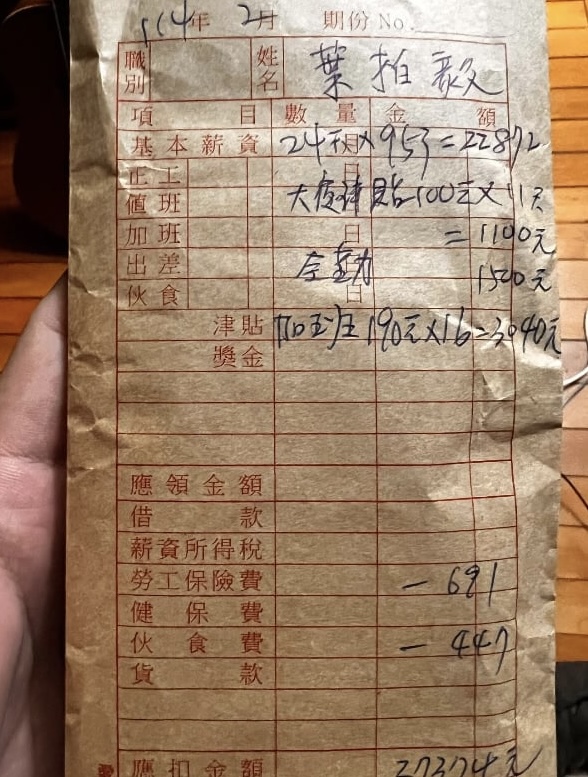 114年 2月 期份 No.
職別 姓名 葉柏毅
項目 數量 金額
基本薪資 24天×953=22872
正工 日
值班 大夜津貼100元×11天
加班 日 =1100元
出差 全勤 1500元
伙食 日
津貼 加班 190元×16=3040元
獎金
應領金額
借款
薪資所得稅
勞工保險費 -691
健保費
伙食費 -447
貨款
應扣金額 27374元